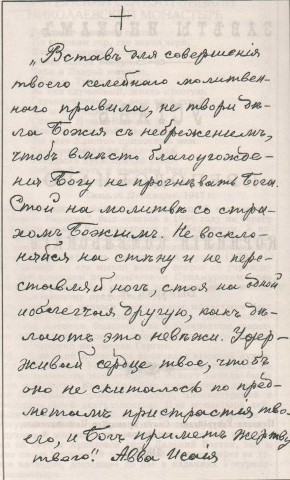 „Вставъ для совершенія
твоего келейнаго молитвен-
наго правила, не твори дѣ-
ла Божія съ небреженіемъ,
чтобъ вмѣсто благоугожде-
нія Богу не прогнѣвать Бога.
Стой на молитвѣ со стра-
хомъ Божіимъ. Не воскло-
няйся на стѣну и не пере-
ставляй ногъ, стоя на одной
и облегчая другую, какъ дѣ-
лаютъ это невѣжи. Удер-
живай сердце твое, чтобъ
оно не скиталось по пред-
метамъ пристрастія тво-
его, и Богъ приметъ жертву
твою". Авва Исаія